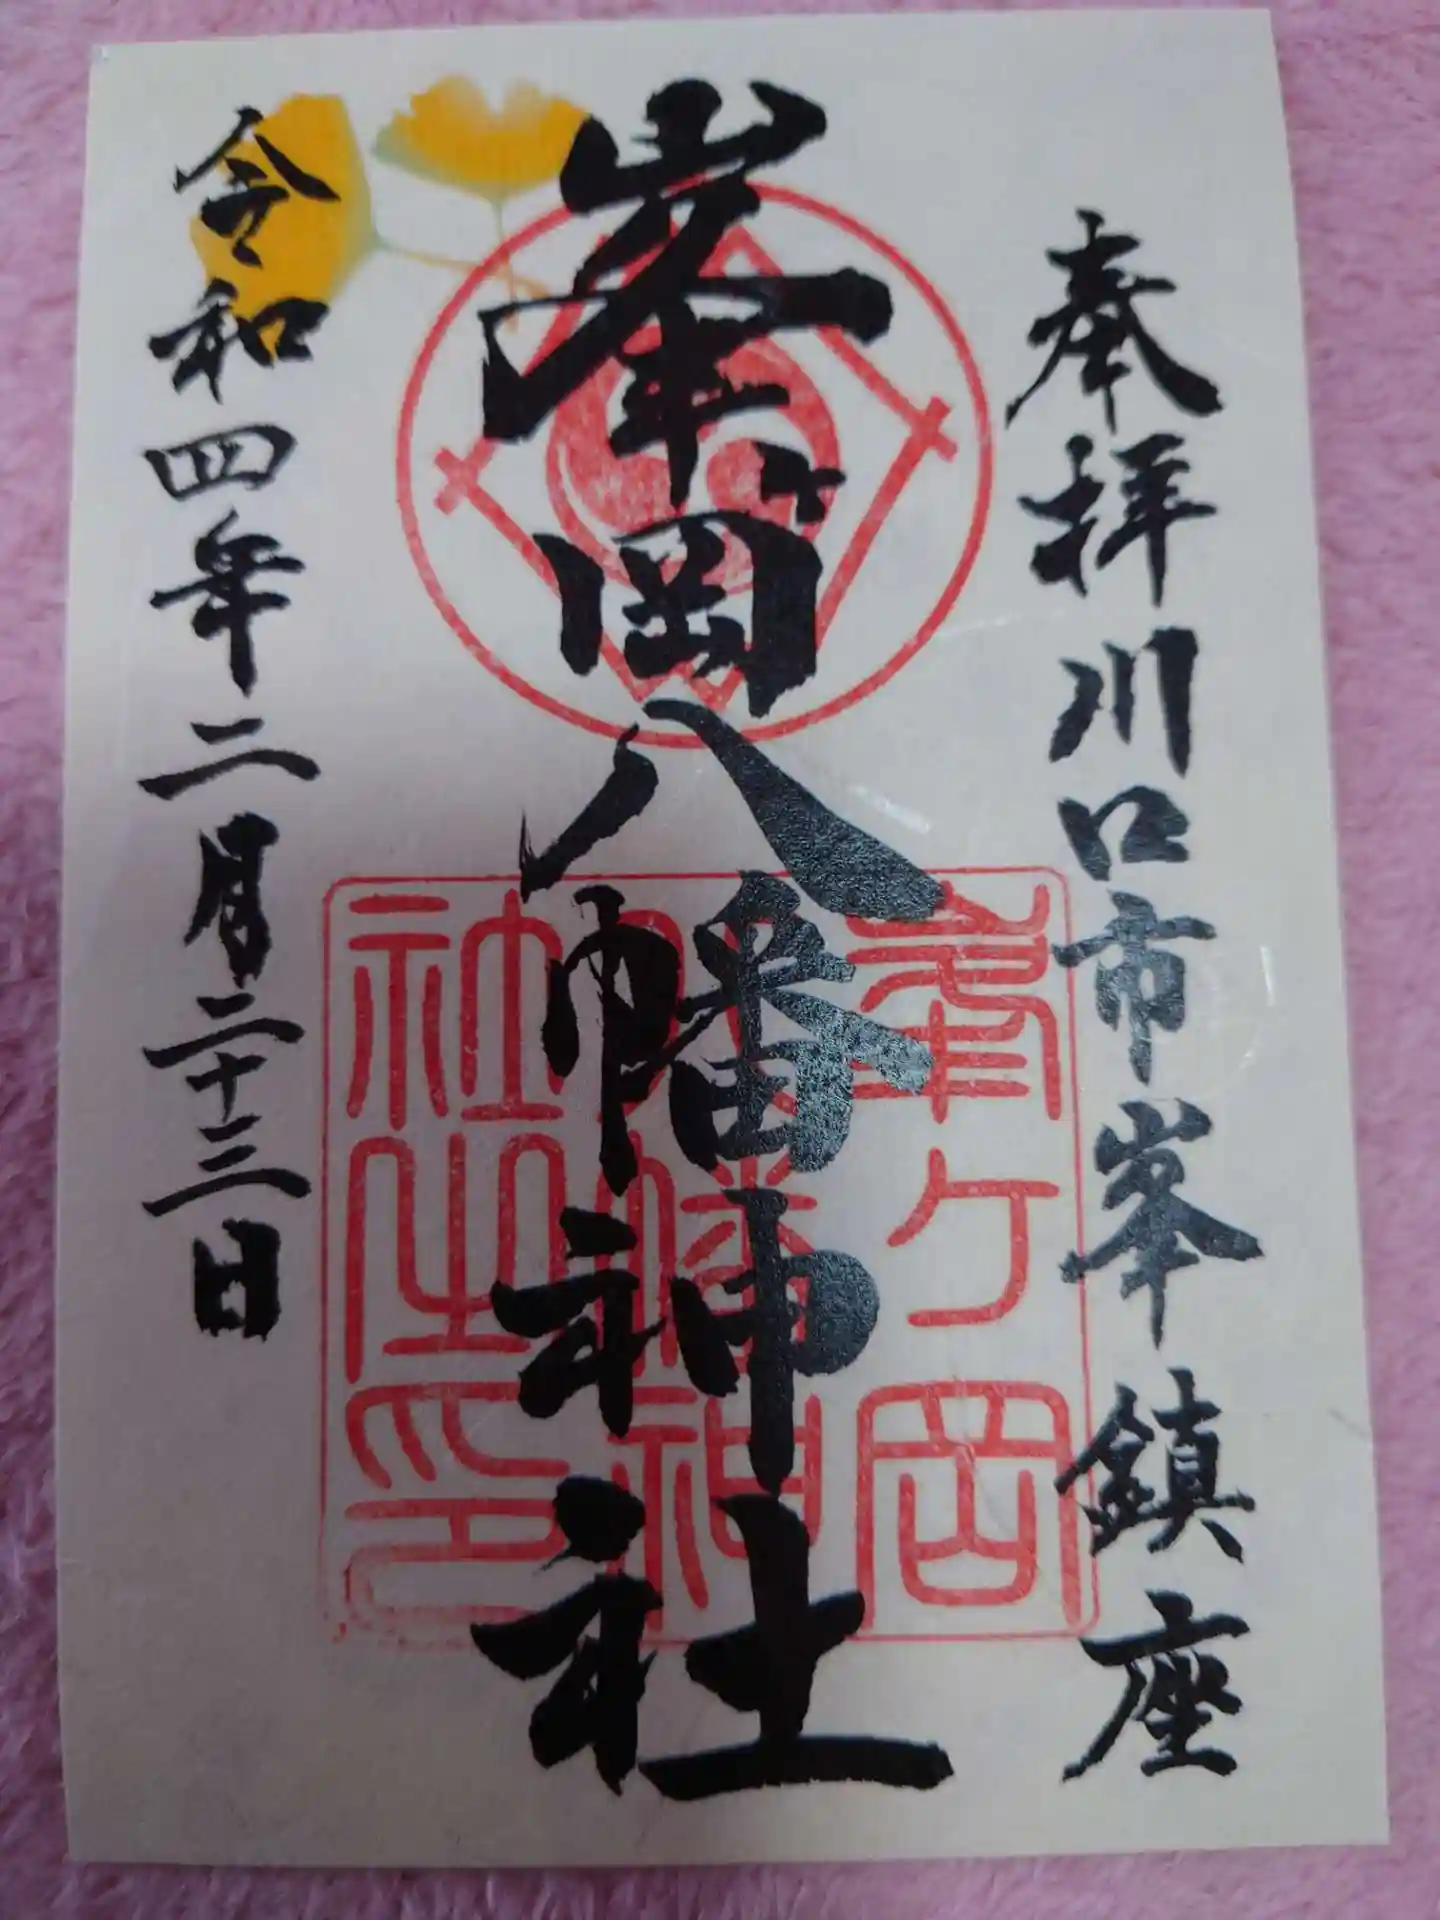 奉拝川口市峯鎮座
峯ヶ岡八幡神社
令和四年二月二十三日
峯ヶ岡
八幡神
社之印